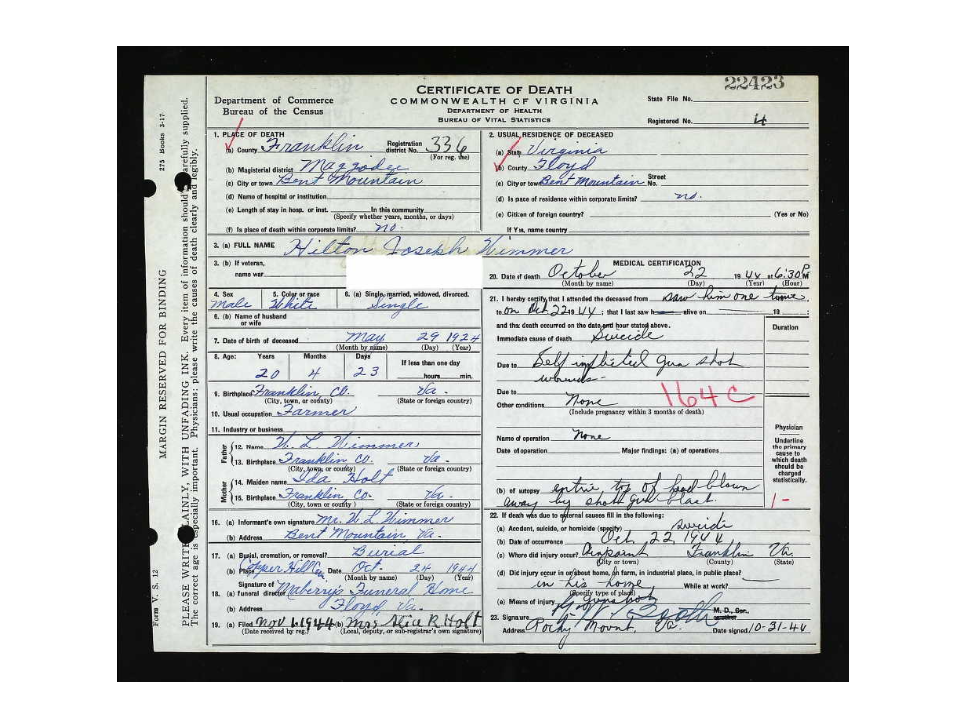 22423
CERTIFICATE OF DEATH
Department of Commerce COMMONWEALTH OF VIRGINIA State File No.
Bureau of the Census DEPARTMENT OF HEALTH
BUREAU OF VITAL STATISTICS Registered No. 4
1. PLACE OF DEATH
(a) County Franklin Registration district No. 336
(For reg. use)
(b) Magisterial district
(c) City or town Bent Mountain
(d) Name of hospital or institution
(e) Length of stay in hosp. or inst. In this community
(Specify whether years, months, or days)
(f) Is place of death within corporate limits? no.
2. USUAL RESIDENCE OF DECEASED
(a) State Virginia
(b) County Floyd
(c) City or town Bent Mountain Street No.
(d) Is pace of residence within corporate limits? no.
(e) Citizen of foreign country? (Yes or No)
If Yes, name country
3. (a) FULL NAME Hilton Joseph Wimmer
3. (b) If veteran,
name war
4. Sex 5. Color or race 6. (a) Single, married, widowed, divorced.
Male White Single
6. (b) Name of husband
or wife
7. Date of birth of deceased May 29 1924
(Month by name) (Day) (Year)
8. Age: Years Months Days If less than one day
20 4 23 hours min.
9. Birthplace Franklin Co. Va.
(City, town, or county) (State or foreign country)
10. Usual occupation Farmer
11. Industry or business
Father
12. Name W. L. Wimmer
13. Birthplace Franklin Co. Va.
(City, town, or county) (State or foreign country)
Mother
14. Maiden name Ida Holt
15. Birthplace Franklin Co. Va.
(City, town, or county) (State or foreign country)
16. (a) Informant's own signature Mr. W L Wimmer
(b) Address Bent Mountain Va.
17. (a) Burial, cremation, or removal? Burial
(b) Place Copper Hill Date Oct. 24 1944
(Month by name) (Day) (Year)
Signature of
18. (a) funeral director Maberry's Funeral Home
(b) Address Floyd Va.
19. (a) Filed Nov 1 1944 (b) Mrs Alice R. Holt
(Date received by reg.) (Local, deputy, or sub-registrar's own signature)
MEDICAL CERTIFICATION
20. Date of death October 22 1944 at 6:30 PM
(Month by name) (Day) (Year) (Hour)
21. I hereby certify that I attended the deceased from saw him one time
to on Oct 22 1944; that I last saw h alive on 19 ;
and that death occurred on the date and hour stated above. Duration
Immediate cause of death Suicide
Due to Self inflicted gun shot
wounds-
Due to
Other conditions None 164C
(Include pregnancy within 3 months of death)
Name of operation None
Date of operation Major findings: (a) of operations
(b) of autopsy entire top of head blown
away by shot gun blast.
Physician
Underline
the primary
cause to
which death
should be
charged
statistically.
1-
22. If death was due to external causes fill in the following:
(a) Accident, suicide, or homicide (specify) suicide
(b) Date of occurrence Oct 22 1944
(c) Where did injury occur? Franklin Va
(City or town) (County) (State)
(d) Did injury occur in or about home, on farm, in industrial place, in public place?
in his home While at work?
(Specify type of place)
(e) Means of injury gunshot
23. Signature Booth M. D.,
Address Rocky Mount, Va. Date signed 10-31-44
Form V. S. 12
275 Books 3-17-
MARGIN RESERVED FOR BINDING
PLEASE WRITE PLAINLY, WITH UNFADING INK. Every item of information should be carefully supplied.
The correct age is especially important. Physicians: please write the causes of death clearly and legibly.